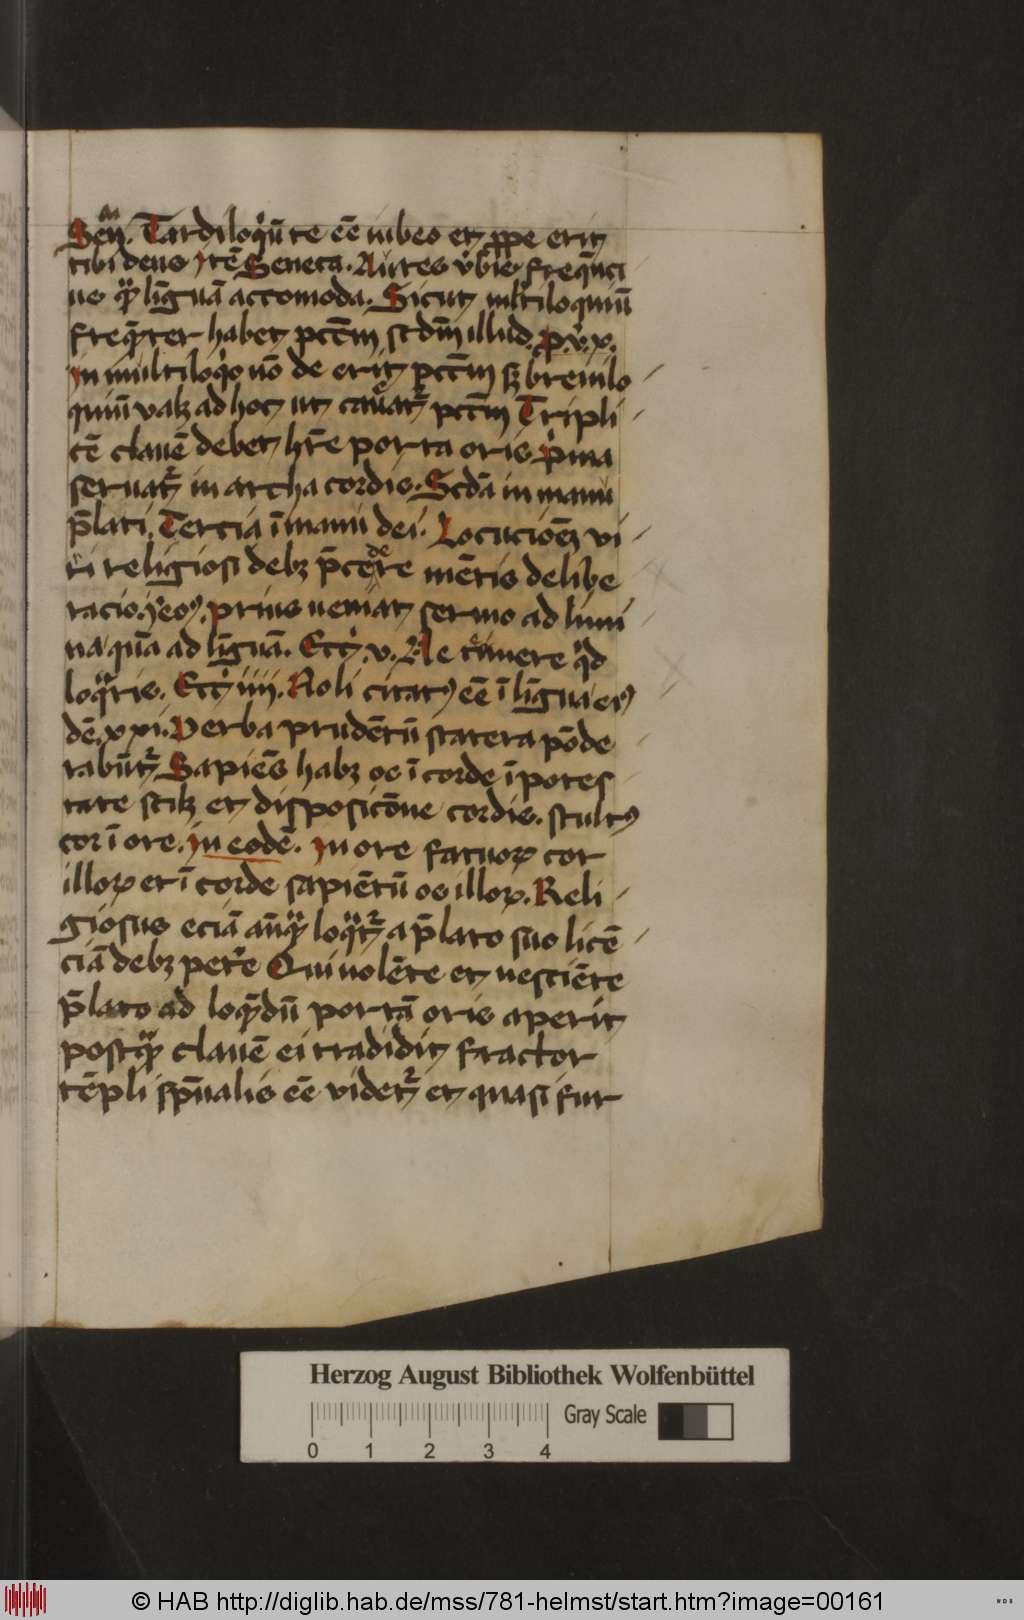 Sen̄. Tardiloqͥū te eē iubeo et ꝓpe erit
tibi deus Itē Seneca. Aures v̓bis freqn̄ci
us qͣꝫ lī̄guā accomoda. Sicut ml̓tiloquiū
freqn̄ter habet pctm̄ scdm̄ illud. ꝓ.v̓.x.
In multiloqͥo nō de erit pctm̄ sꝫ breuilo
quiū valꝫ ad hoc ut caueat᷑ pctm̄ Tripli
cē clauē debet hr̄e porta oris pͥma
seruat᷑ in archa cordis. Scdā in manu
p̄lati. Tercia ī manu dei. Locucioēꝫ vi
ri religiosi debꝫ p̄cedere mētis delibe
racio. prius ueniat sermo ad limi
na quā ad līguā. Eccͥ.v. Ne tͥmere qͥd
loqͣris. Eccͥ iiii. Noli citatꝰ eē ī līgua eiꝰ
dē.xxi. Verba prudētū statera pōde
rabūt᷑ Sapiēs habꝫ os ī corde ī potes
tate scilꝫ et disposicōne cordis. stultꝰ
cor ī ore. In eodē. In ore fatuoꝝ cor
illoꝝ et ī corde sapiētū os illoꝝ. Reli
giosus eciā an̄qͣꝫ loqͣt᷑ a p̄lato suo licē
ciā debꝫ petͤe Qui nolēte et nesciēte
p̄lato ad loqn̄dū portā oris aperit
postqͣꝫ clauē ei tradidit fractor
tēpli sp̄ualis eē videt᷑ et quasi fur
Herzog August Bibliothek Wolfenbüttel
Gray Scale
0 1 2 3 4
© HAB http://diglib.hab.de/mss/781-helmst/start.htm?image=00161